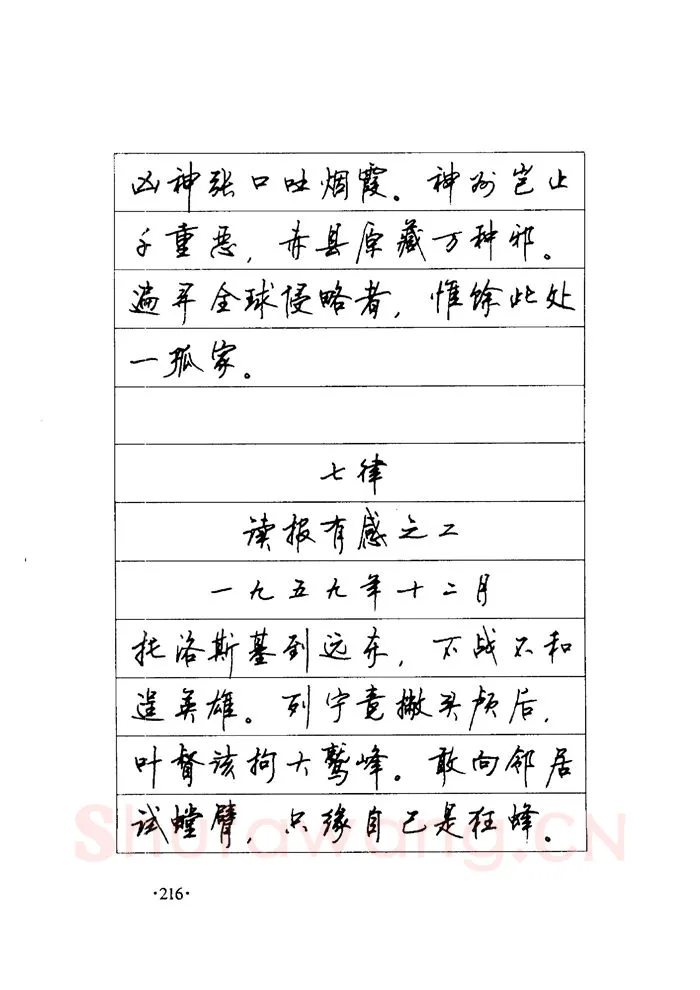 凶神张口吐烟霞。神州岂止
千重恶，赤县原藏万种邪。
遍寻全球侵略者，惟馀此处
一孤家。
七律
读报有感之二
一九五九年十二月
托洛斯基到远东，不战不和
逞英雄。列宁竟撇头颅后，
叶督该拘大鹫峰。敢向邻居
试螳臂，只缘自己是狂蜂。
Shufawang.CN
·216·